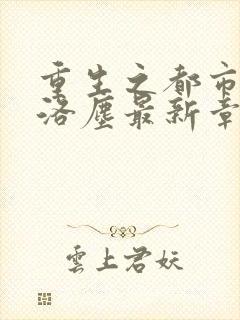 重生之都市
洛塵最新章
雲上君妖